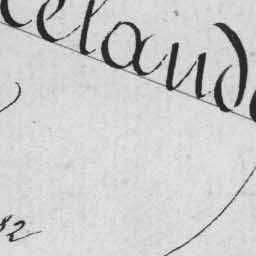 celand
82